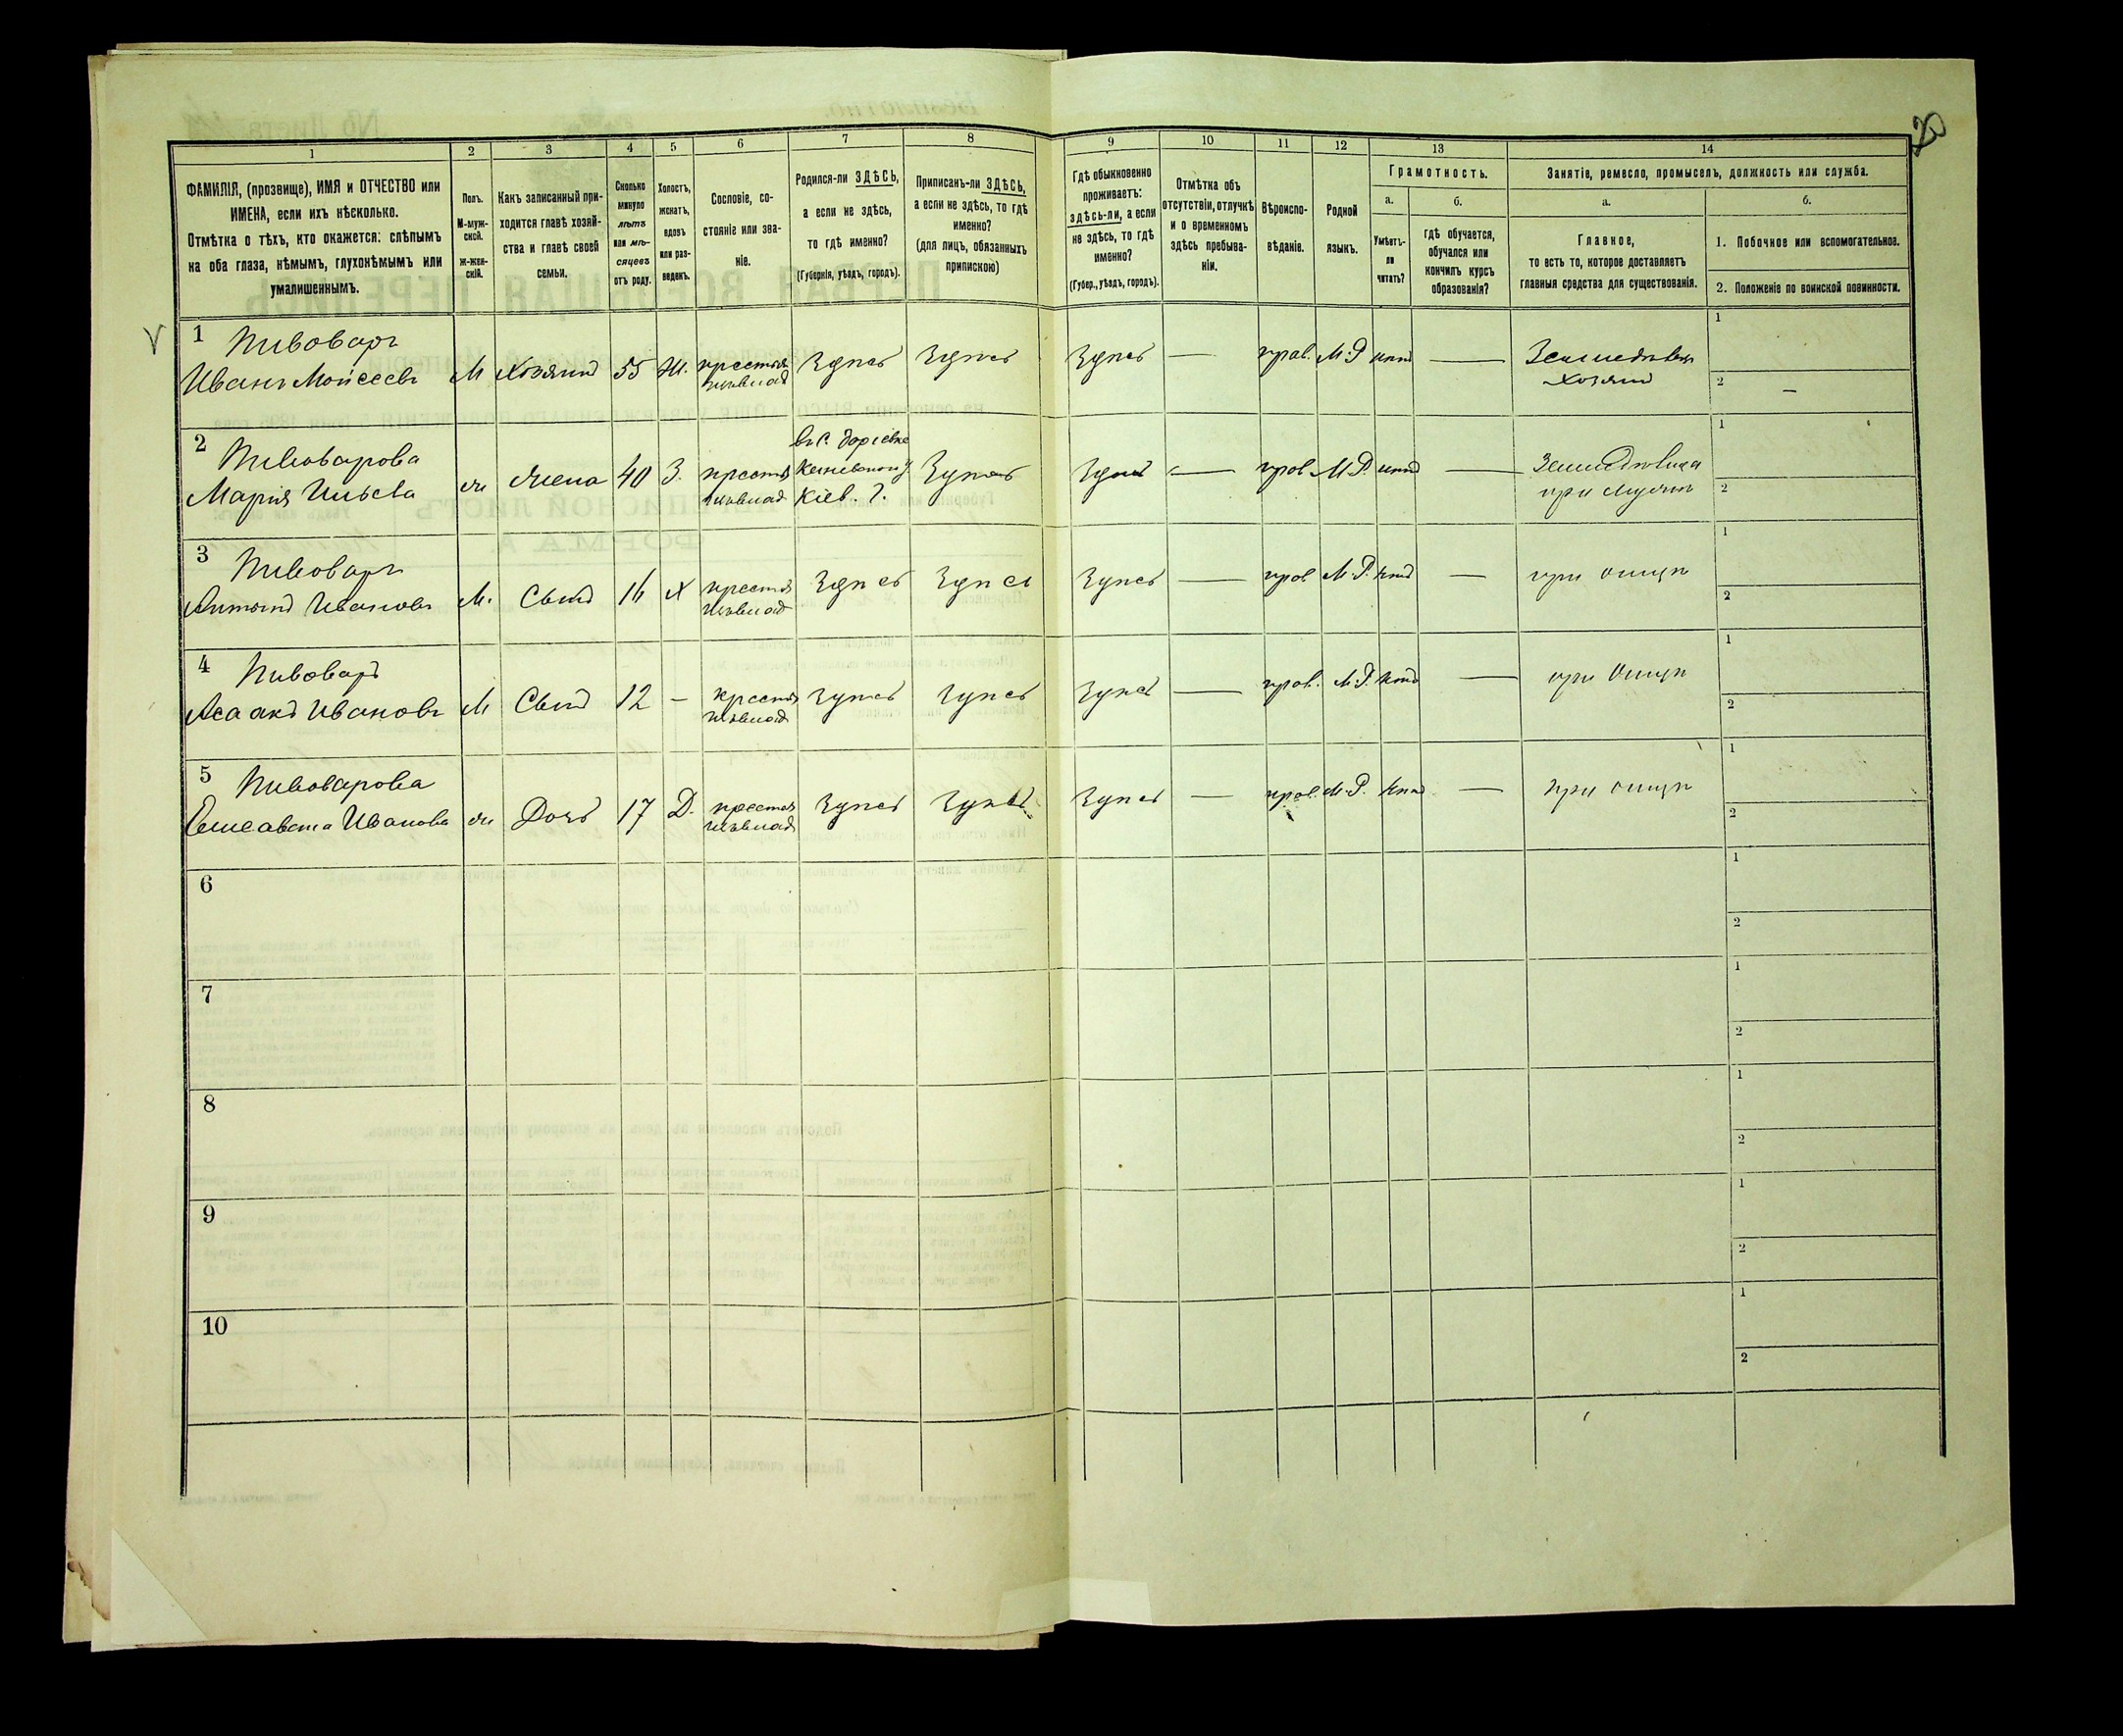 20
1 2 3 4 5 6 7 8 9 10 11 12 13 14
ФАМИЛІЯ, (прозвище), ИМЯ и ОТЧЕСТВО или
ИМЕНА, если ихъ нѣсколько.
Отмѣтка о тѣхъ, кто окажется: слѣпымъ
на оба глаза, нѣмымъ, глухонѣмымъ или
умалишеннымъ.
Полъ.
М-муж-
ской.
ж-жен-
скій.
Какъ записанный при-
ходится главѣ хозяй-
ства и главѣ своей
семьи.
Сколько
минуло
лѣтъ
или мѣ-
сяцевъ
отъ роду.
Холостъ,
женатъ,
вдовъ
или раз-
веденъ.
Сословіе, со-
стояніе или зва-
ніе.
Родился-ли ЗДѢСЬ,
а если не здѣсь,
то гдѣ именно?
(Губернія, уѣздъ, городъ).
Приписанъ-ли ЗДѢСЬ,
а если не здѣсь, то гдѣ
именно?
(для лицъ, обязанныхъ
припискою)
Гдѣ обыкновенно
проживаетъ:
здѣсь-ли, а если
не здѣсь, то гдѣ
именно?
(Губер., уѣздъ, городъ).
Отмѣтка объ
отсутствіи, отлучкѣ
и о временномъ
здѣсь пребыва-
ніи.
Вѣроиспо-
вѣданіе.
Родной
языкъ.
Грамотность.
а.
Умѣетъ-
ли
читать?
б.
гдѣ обучается,
обучался или
кончилъ курсъ
образованія?
Занятіе, ремесло, промыселъ, должность или служба.
а.
Главное,
то есть то, которое доставляетъ
главныя средства для существованія.
б.
1. Побочное или вспомогательное.
2. Положеніе по воинской повинности.
1 Пивоваръ
Иванъ Мойсеевъ М Хозяинъ 55 Ж. крестьян Здѣсь Здѣсь Здѣсь — прав. М.Р нѣтъ — Земледѣлецъ
хозяинъ
1
2 —
2 Пивоварова
Марія Ильева ж жена 40 З. крестья Каневскаго у Кіев. г. Здѣсь Здѣсь — прав М.Р. нѣтъ — Земледѣлица
при мужѣ
1
2
3 Пивоваръ
Антонъ Ивановъ М. Сынъ 16 Х крестья Здѣсь Здѣсь Здѣсь — прав М.Р. нѣтъ — при отцѣ
1
2
4 Пивоваръ
Исаакъ Ивановъ М Сынъ 12 — крестья Здѣсь Здѣсь Здѣсь — прав. М.Р. нѣтъ — при отцѣ
1
2
5 Пивоварова
Елисавета Иванова ж Дочь 17 Д. крестья Здѣсь Здѣсь Здѣсь — прав. М.Р. нѣтъ — при отцѣ
1
2
6
1
2
7
1
2
8
1
2
9
1
2
10
1
2